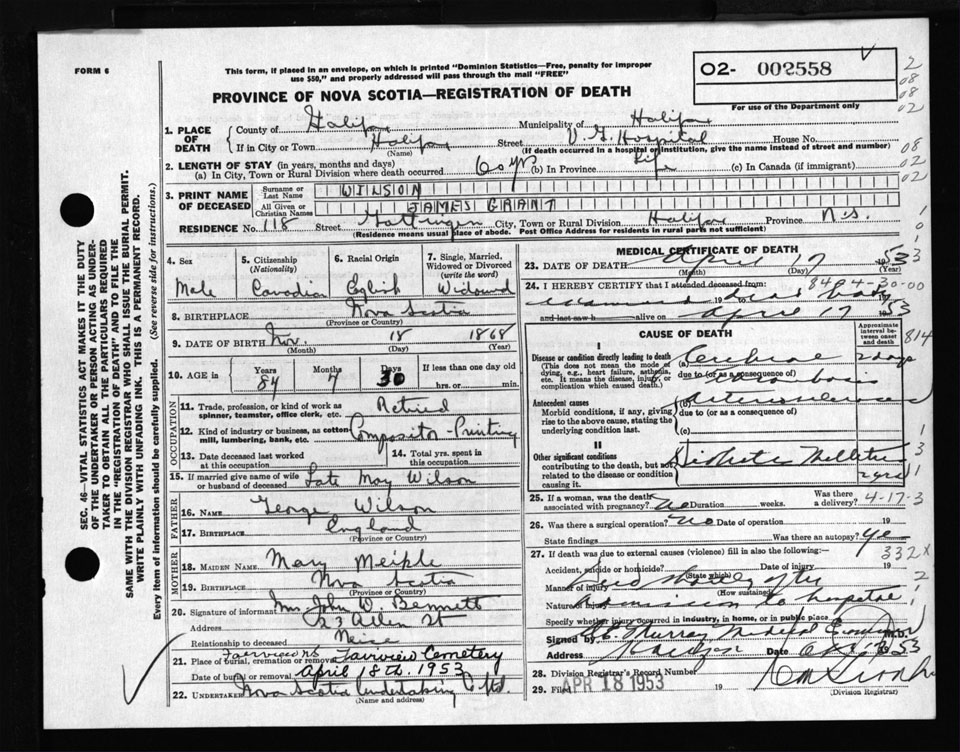 FORM 6
This form, if placed in an envelope, on which is printed "Dominion Statistics—Free, penalty for improper
use $50," and properly addressed will pass through the mail "FREE"
PROVINCE OF NOVA SCOTIA—REGISTRATION OF DEATH
02- 002558
For use of the Department only
2
08
08
02
08
02
02
SEC. 46—VITAL STATISTICS ACT MAKES IT THE DUTY
OF THE UNDERTAKER OR PERSON ACTING AS UNDER-
TAKER TO OBTAIN ALL THE PARTICULARS REQUIRED
IN THE "REGISTRATION OF DEATH" AND TO FILE THE
SAME WITH THE DIVISION REGISTRAR WHO SHALL ISSUE THE BURIAL PERMIT.
WRITE PLAINLY WITH UNFADING INK. THIS IS A PERMANENT RECORD.
Every item of information should be carefully supplied. (See reverse side for instructions.)
1. PLACE OF DEATH
County of Halifax Municipality of Halifax
If in City or Town Halifax Street V. G. Hospital House No.
(Name) (If death occurred in a hospital or institution, give the name instead of street and number)
2. LENGTH OF STAY (in years, months and days)
(a) In City, Town or Rural Division where death occurred 60 yr (b) In Province Life (c) In Canada (if immigrant)
3. PRINT NAME OF DECEASED
Surname or Last Name WILSON
All Given or Christian Names JAMES GRANT
RESIDENCE No. 118 Street Gottingen City, Town or Rural Division Halifax Province N.S.
(Residence means usual place of abode. Post Office Address for residents in rural parts not sufficient)
4. Sex Male
5. Citizenship (Nationality) Canadian
6. Racial Origin English
7. Single, Married, Widowed or Divorced (write the word) Widowed
8. BIRTHPLACE Nova Scotia
(Province or Country)
9. DATE OF BIRTH Nov. 18 1868
(Month) (Day) (Year)
10. AGE in Years 84 Months Days 30 If less than one day old hrs. or min.
OCCUPATION
11. Trade, profession, or kind of work as spinner, teamster, office clerk, etc. Retired
12. Kind of industry or business, as cotton mill, lumbering, bank, etc. Compositor - Printing
13. Date deceased last worked at this occupation
14. Total yrs. spent in this occupation
15. If married give name of wife or husband of deceased Late May Wilson
FATHER
16. NAME George Wilson
17. BIRTHPLACE England
(Province or Country)
MOTHER
18. MAIDEN NAME Mary Meikle
19. BIRTHPLACE Nova Scotia
(Province or Country)
20. Signature of informant Mrs John W. Bennett
Address 23 Allen St
Relationship to deceased Neice
21. Place of burial, cremation or removal Fairview NS Fairview Cemetery
Date of burial or removal April 18th. 1953
22. UNDERTAKER Nova Scotia Undertaking Co Ltd.
(Name and address)
MEDICAL CERTIFICATE OF DEATH
23. DATE OF DEATH April 17 1953
(Month) (Day) (Year)
24. I HEREBY CERTIFY that I attended deceased from:
84 04-30-00
19
and last saw h alive on April 17 1953
CAUSE OF DEATH
Approximate interval between onset and death
814
I
Disease or condition directly leading to death
(This does not mean the mode of dying, e.g., heart failure, asthenia, etc. It means the disease, injury, or complication which caused death.)
(a) Cerebral 2 days
due to (or as a consequence of)
thrombosis
Antecedent causes
Morbid conditions, if any, giving rise to the above cause, stating the underlying condition last.
(b) Arteriosclerosis
due to (or as a consequence of)
(c)
II
Other significant conditions
contributing to the death, but not related to the disease or condition causing it.
Diabetes Mellitus
2 yrs
25. If a woman, was the death associated with pregnancy? No Duration weeks. Was there a delivery? 4-17-3
26. Was there a surgical operation? No Date of operation 19
State findings Was there an autopsy? Yes
27. If death was due to external causes (violence) fill in also the following:—
332X
Accident, suicide or homicide? Date of injury 19
(State which)
Manner of injury Died shortly after
(How sustained)
Nature of injury admission to hospital
Specify whether injury occurred in industry, in home, or in public place
Signed by Murray Medical Examiner M.D.
Address Halifax Date 1953
28. Division Registrar's Record Number
29. Filed APR 18 1953 19
(Division Registrar)